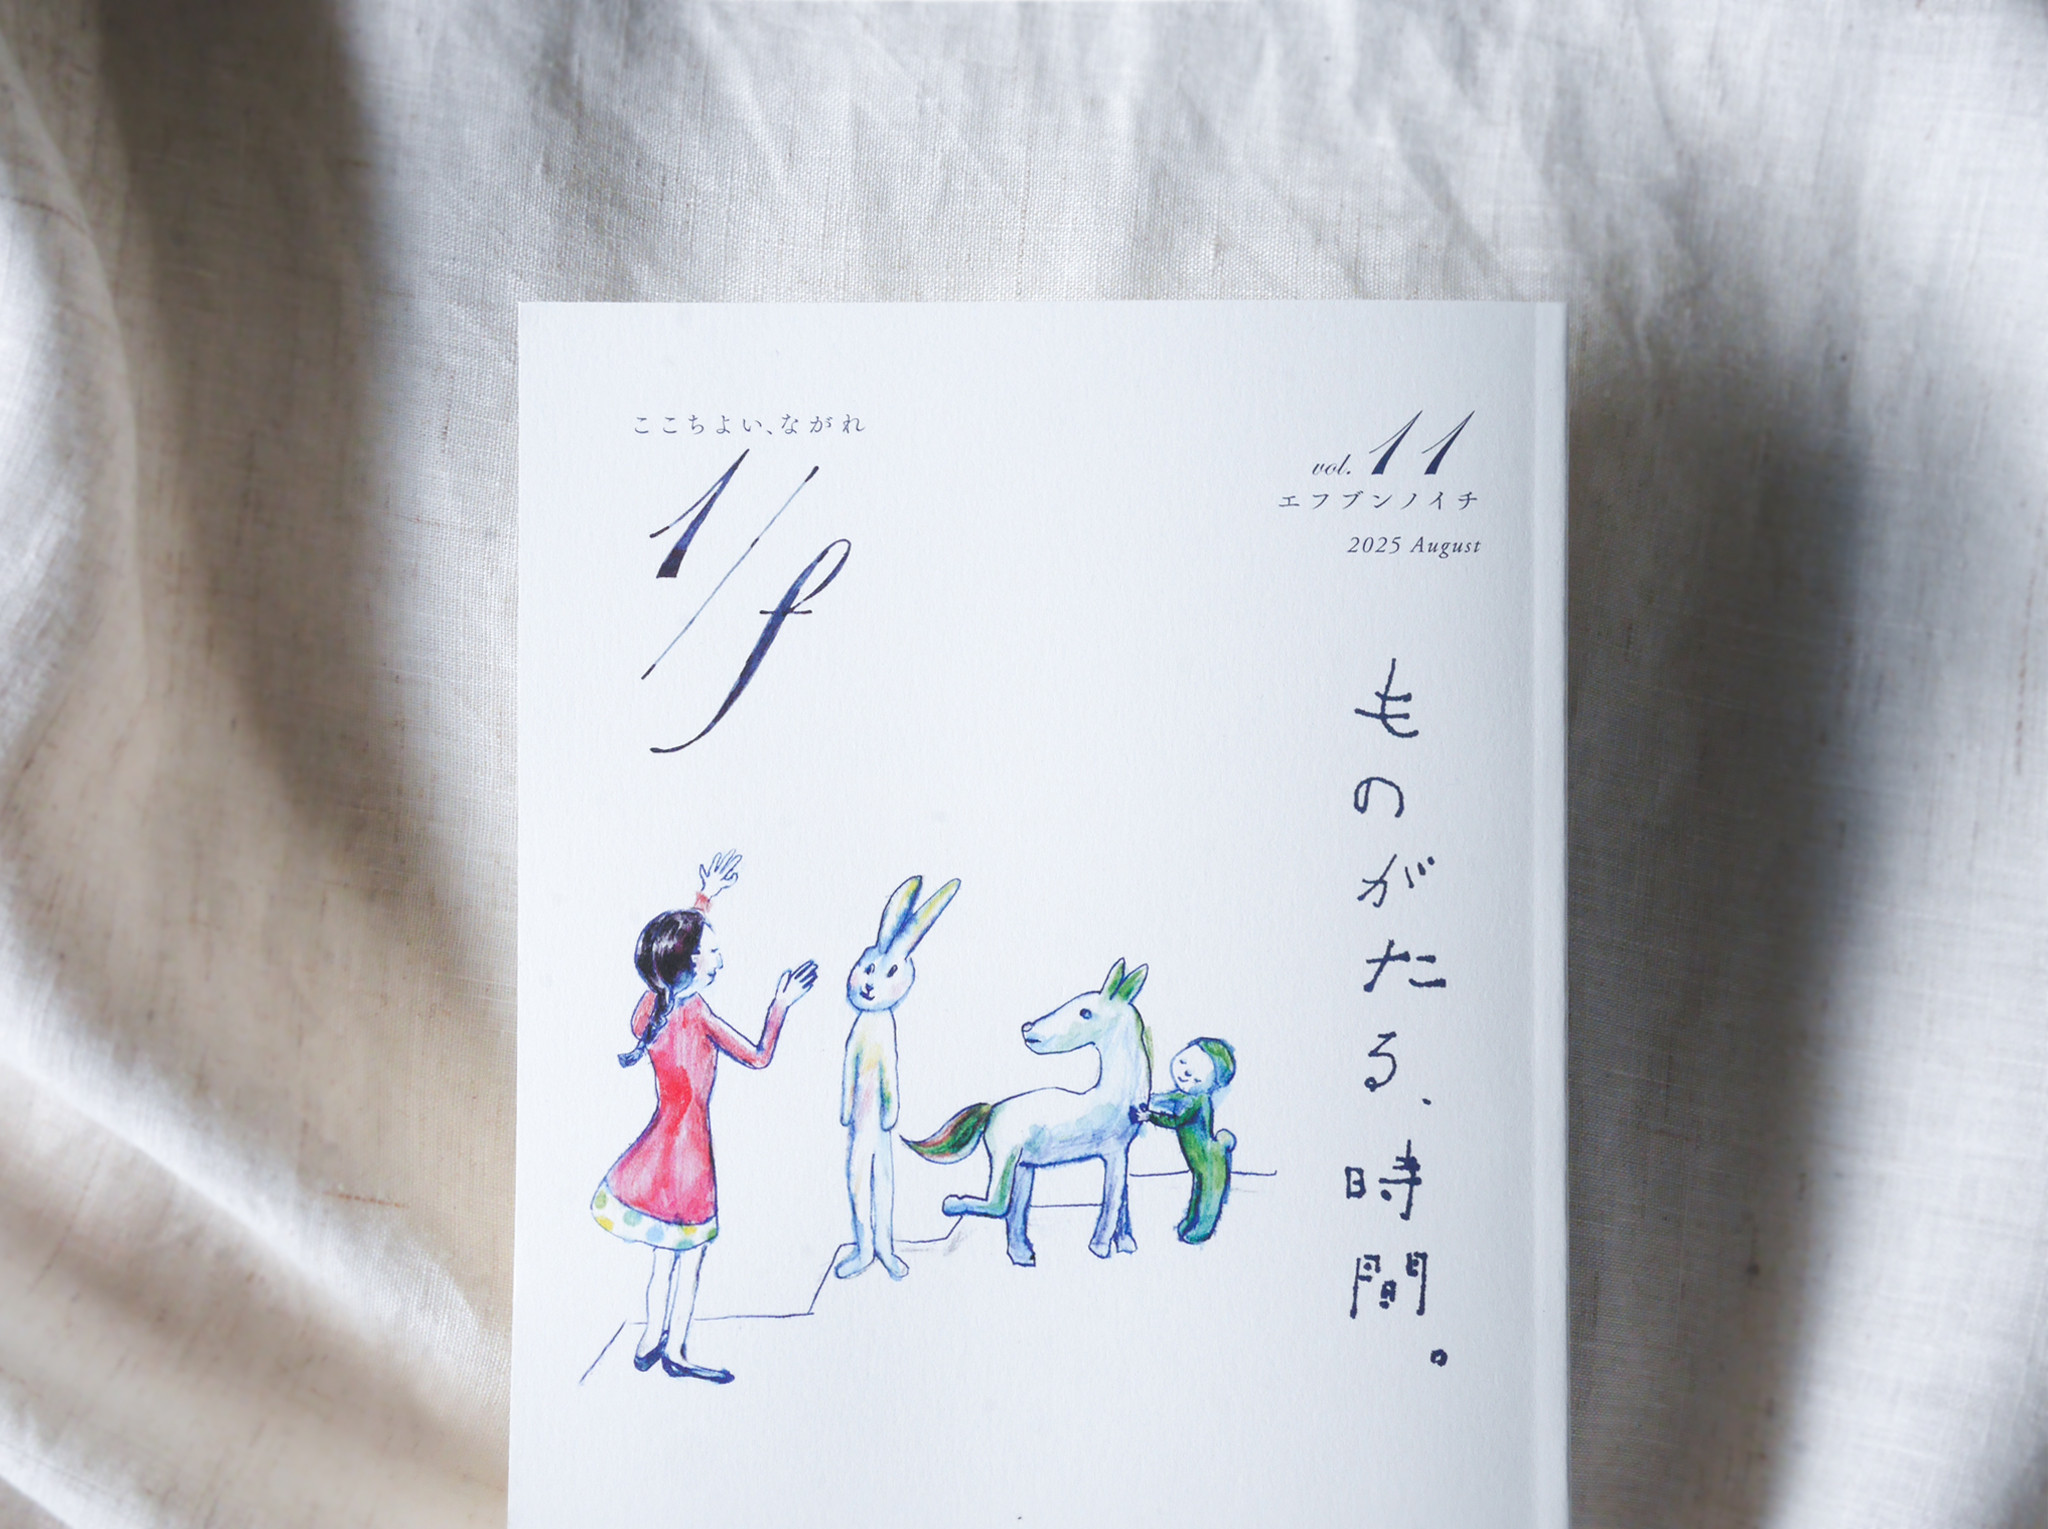 ここちよい、ながれ
1/f
vol. 11
エフブンノイチ
2025 August
ものがたる、時間。